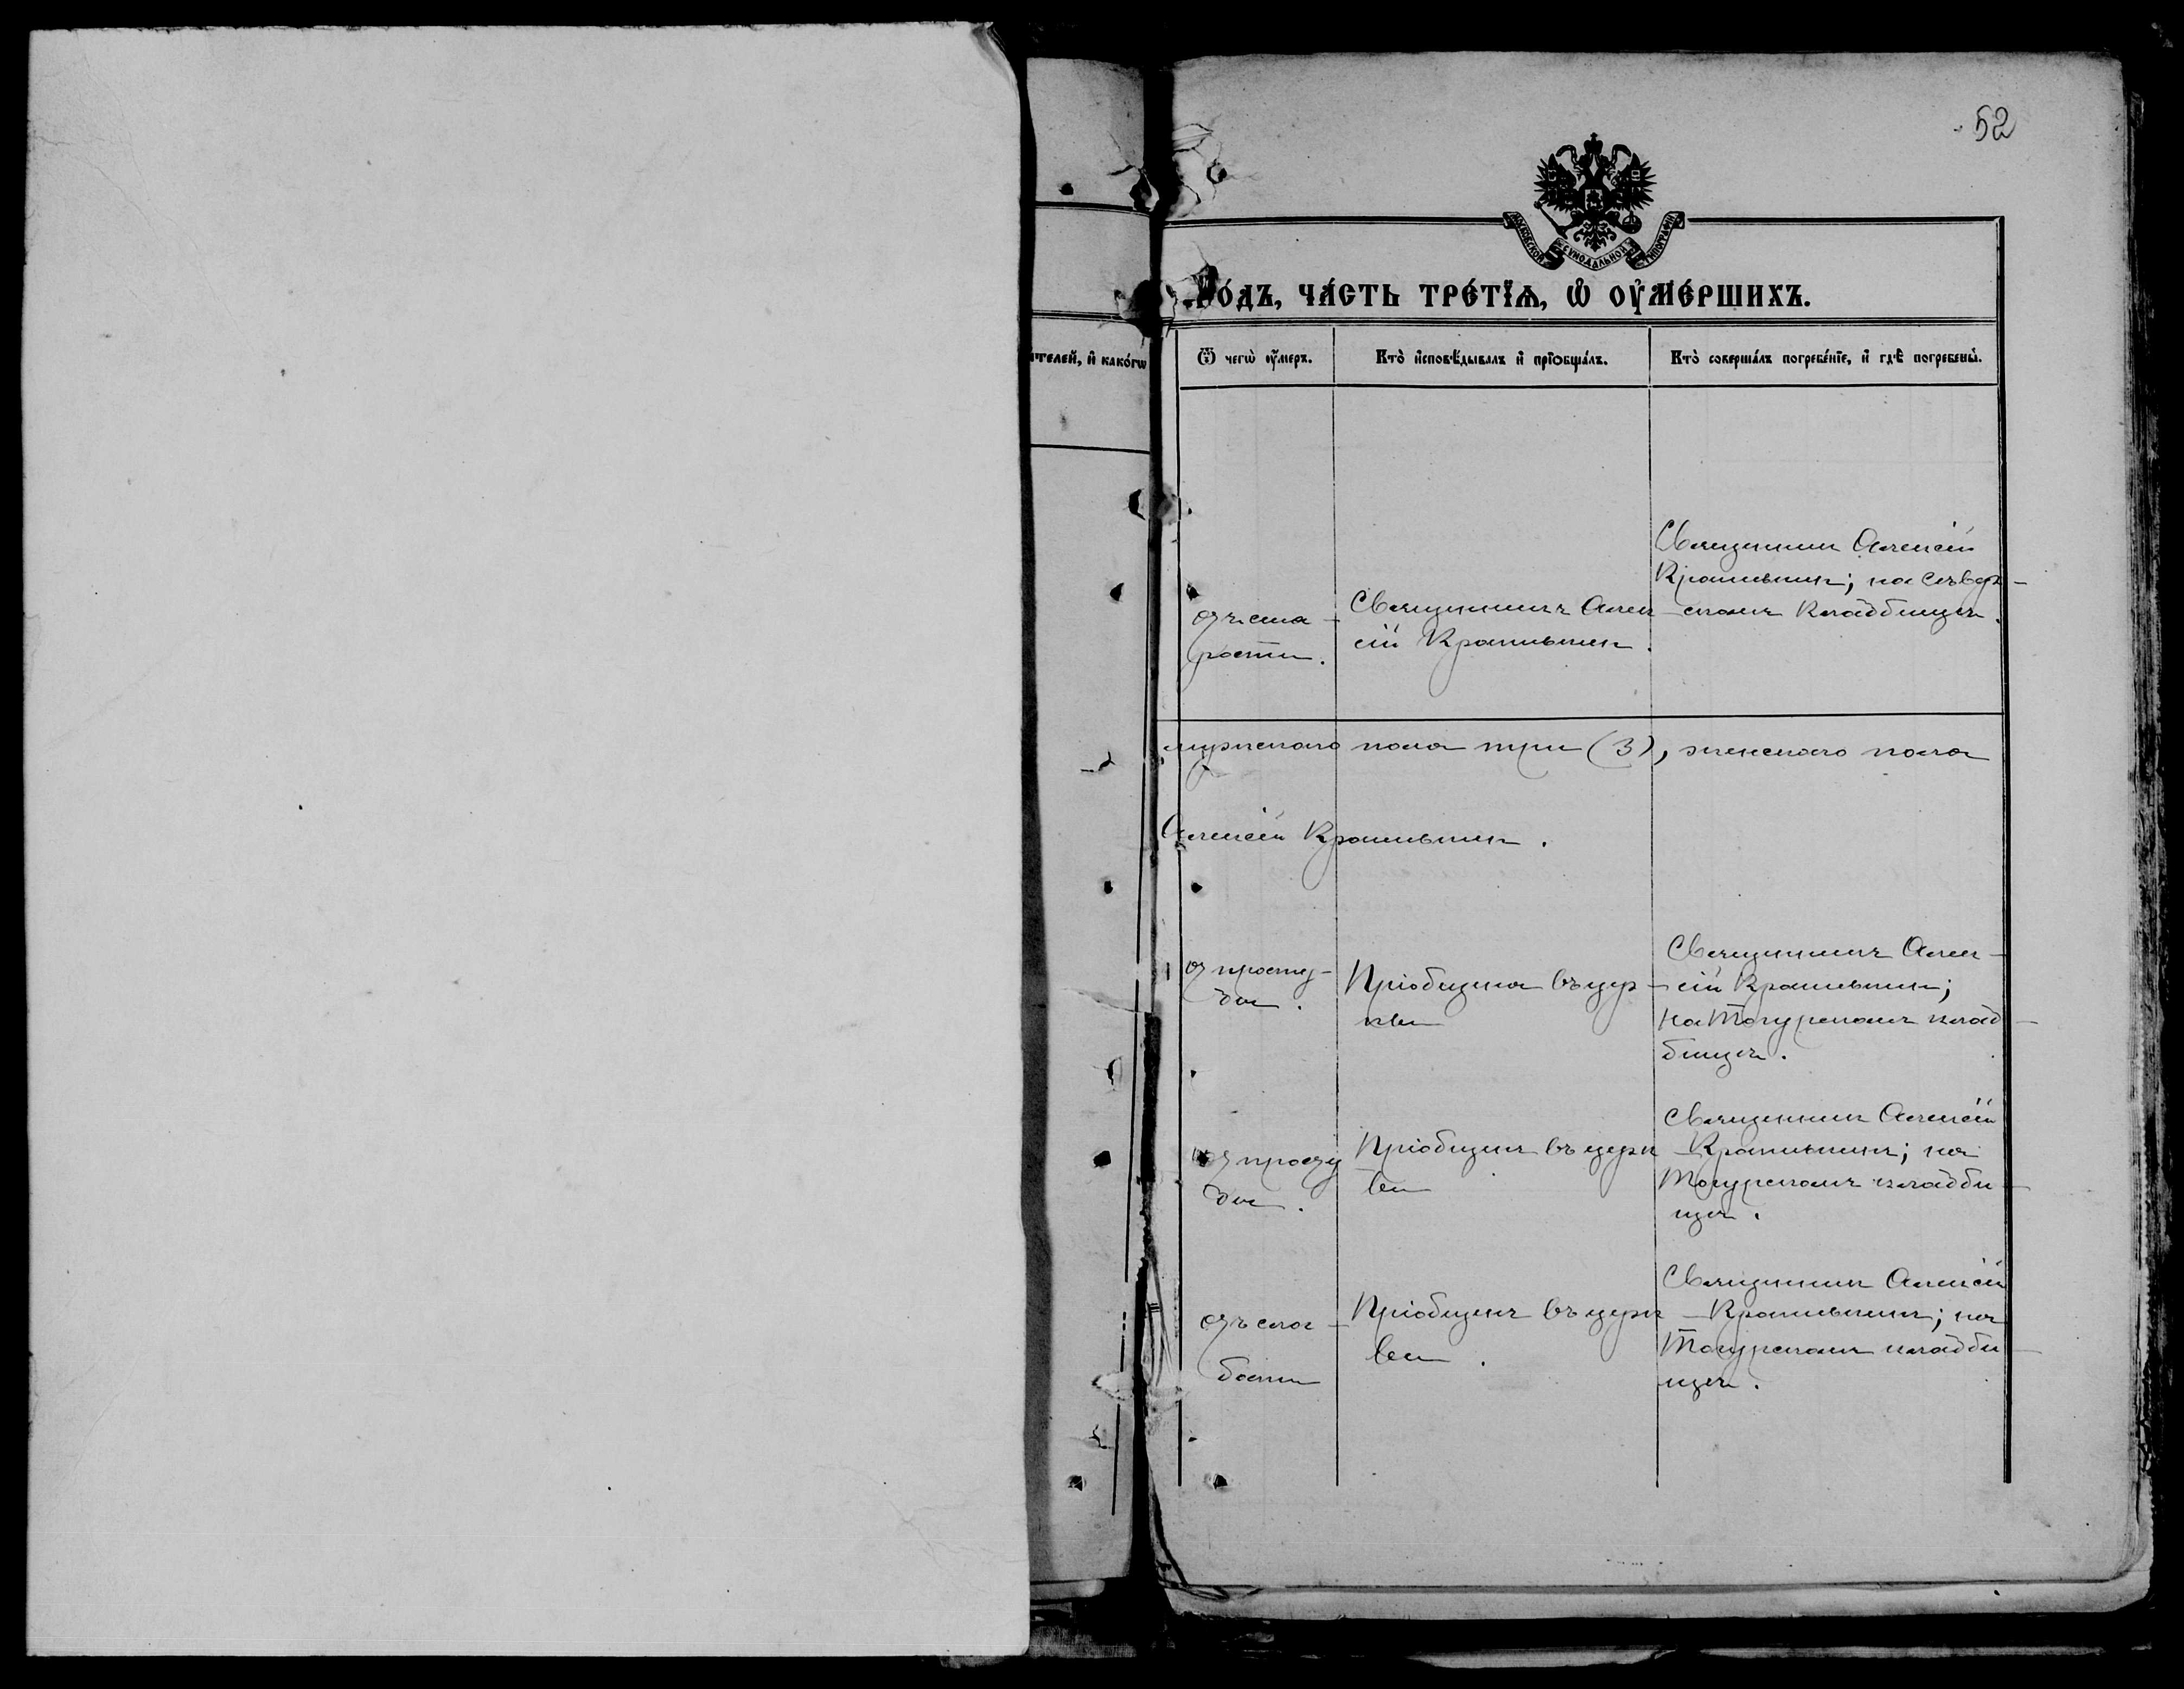 52
МОСКОВСКОЙ СѴНОДАЛЬНОЙ ТИПОГРАФІИ
го́дъ, ча́сть тре́тїѧ, ѡ҆ ᲂу҆ме́ршихъ.
ителей, и҆ како́гѡ
Ѿ чегѡ̀ ᲂу҆́меръ.
Кто̀ и҆сповѣ́дывалъ и҆ прїѡбща́лъ.
Кто̀ соверша́лъ погребе́нїе, и҆ гдѣ̀ погребены̀.
отъ ста-
рости.
Священникъ Алек-
сій Крапивинъ.
Священникъ Алексій
Крапивинъ; на
скомъ кладбищѣ.
мужскаго пола три (3), женскаго пола
Алексій Крапивинъ.
отъ просту-
ды.
Пріобщена въ цер-
кви
Священникъ Алек-
сій Крапивинъ;
на Тогурскомъ клад-
бищѣ.
отъ просту
ды.
Пріобщенъ въ церк
ви
Священникъ Алексій
Крапивинъ; на
Тогурскомъ кладби-
щѣ.
отъ сла-
бости
Пріобщенъ въ церк
ви.
Священникъ Алексій
Крапивинъ; на
Тогурскомъ кладби-
щѣ.